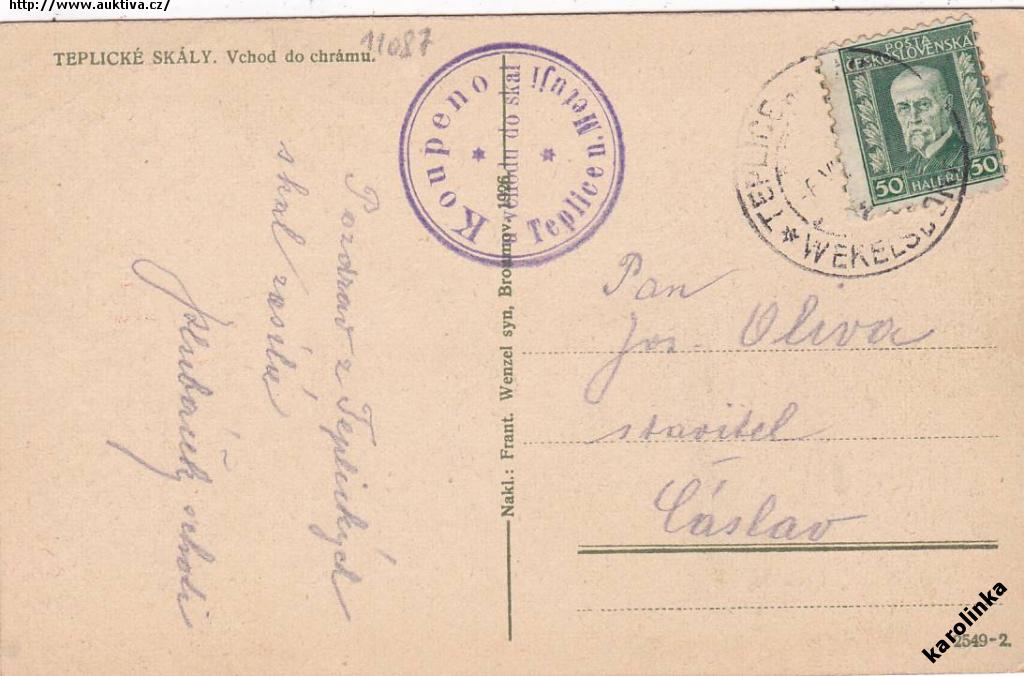 http://www.auktiva.cz/
TEPLICKÉ SKÁLY. Vchod do chrámu.
11087
Koupeno
u vchodu do skal
Teplice n. Metují
POSTA
ČESKOSLOVENSKÁ
50 HALÉŘŮ 50
TEPLICE
WEKELSDORF
Pozdrav z Teplických
skal zasílá
Nakl.: Frant. Wenzel syn, Broumov. 1926
Pan
Jos. Oliva
stavitel
Čáslav
2549-2.
karolinka